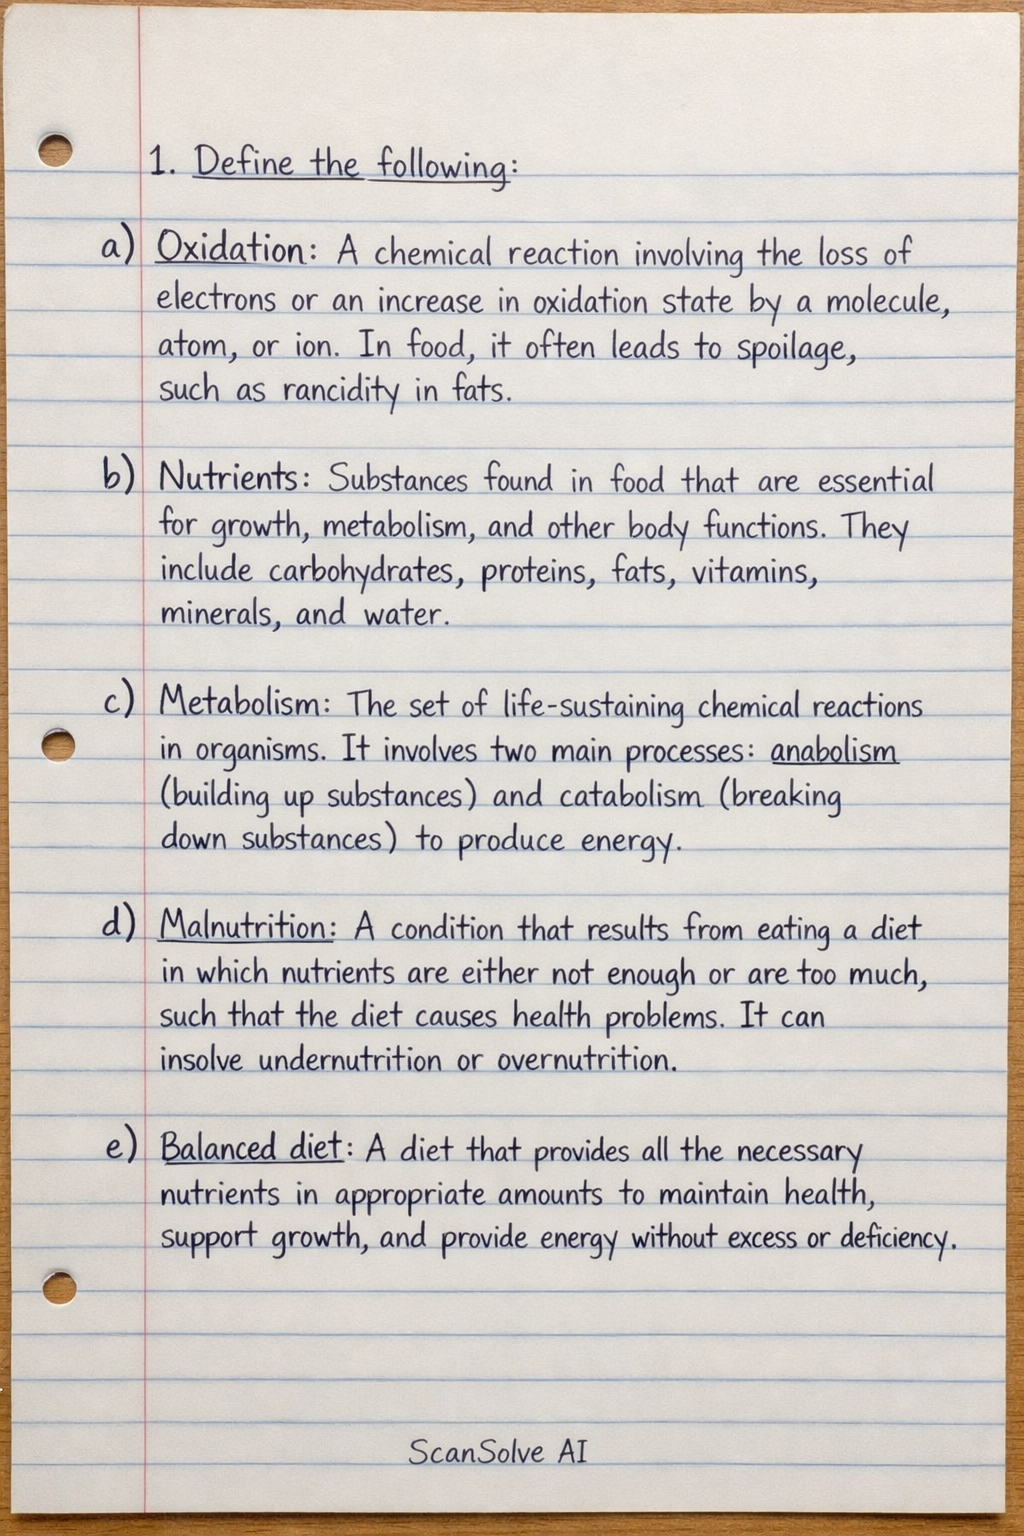 1. Define the following:
a) Oxidation: A chemical reaction involving the loss of
electrons or an increase in oxidation state by a molecule,
atom, or ion. In food, it often leads to spoilage,
such as rancidity in fats.
b) Nutrients: Substances found in food that are essential
for growth, metabolism, and other body functions. They
include carbohydrates, proteins, fats, vitamins,
minerals, and water.
c) Metabolism: The set of life-sustaining chemical reactions
in organisms. It involves two main processes: anabolism
(building up substances) and catabolism (breaking
down substances) to produce energy.
d) Malnutrition: A condition that results from eating a diet
in which nutrients are either not enough or are too much,
such that the diet causes health problems. It can
insolve undernutrition or overnutrition.
e) Balanced diet: A diet that provides all the necessary
nutrients in appropriate amounts to maintain health,
support growth, and provide energy without excess or deficiency.
ScanSolve AI